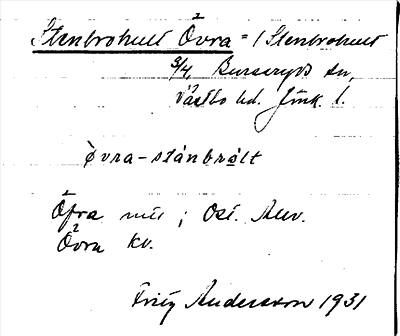 Stenbrohult Övra = 1 Stenbrohult
3/4 Burseryds sn,
Västbo hd. Jönk. l.
övra-stånbrølt
Öfra
Övra kv.
Fritz Andersson 1931